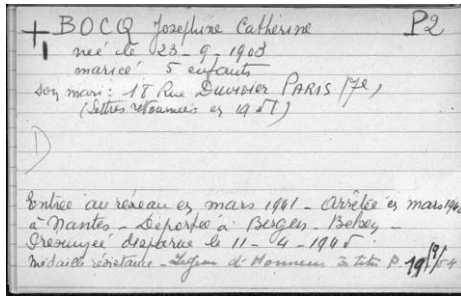 + BOCQ Joséphine Catherine P2
née le 23-9-1903
mariée 5 enfants
son mari: 18 Rue DUVIVIER PARIS (7e)
(Lettres retournées en 1951)
Entrée au réseau en mars 1941 - Arrêtée en mars
à Nantes - Déportée à Bergen-Belsen -
Présumée disparue le 11-4-1945
Médaille résistance - Légion d'Honneur à titre P. 19